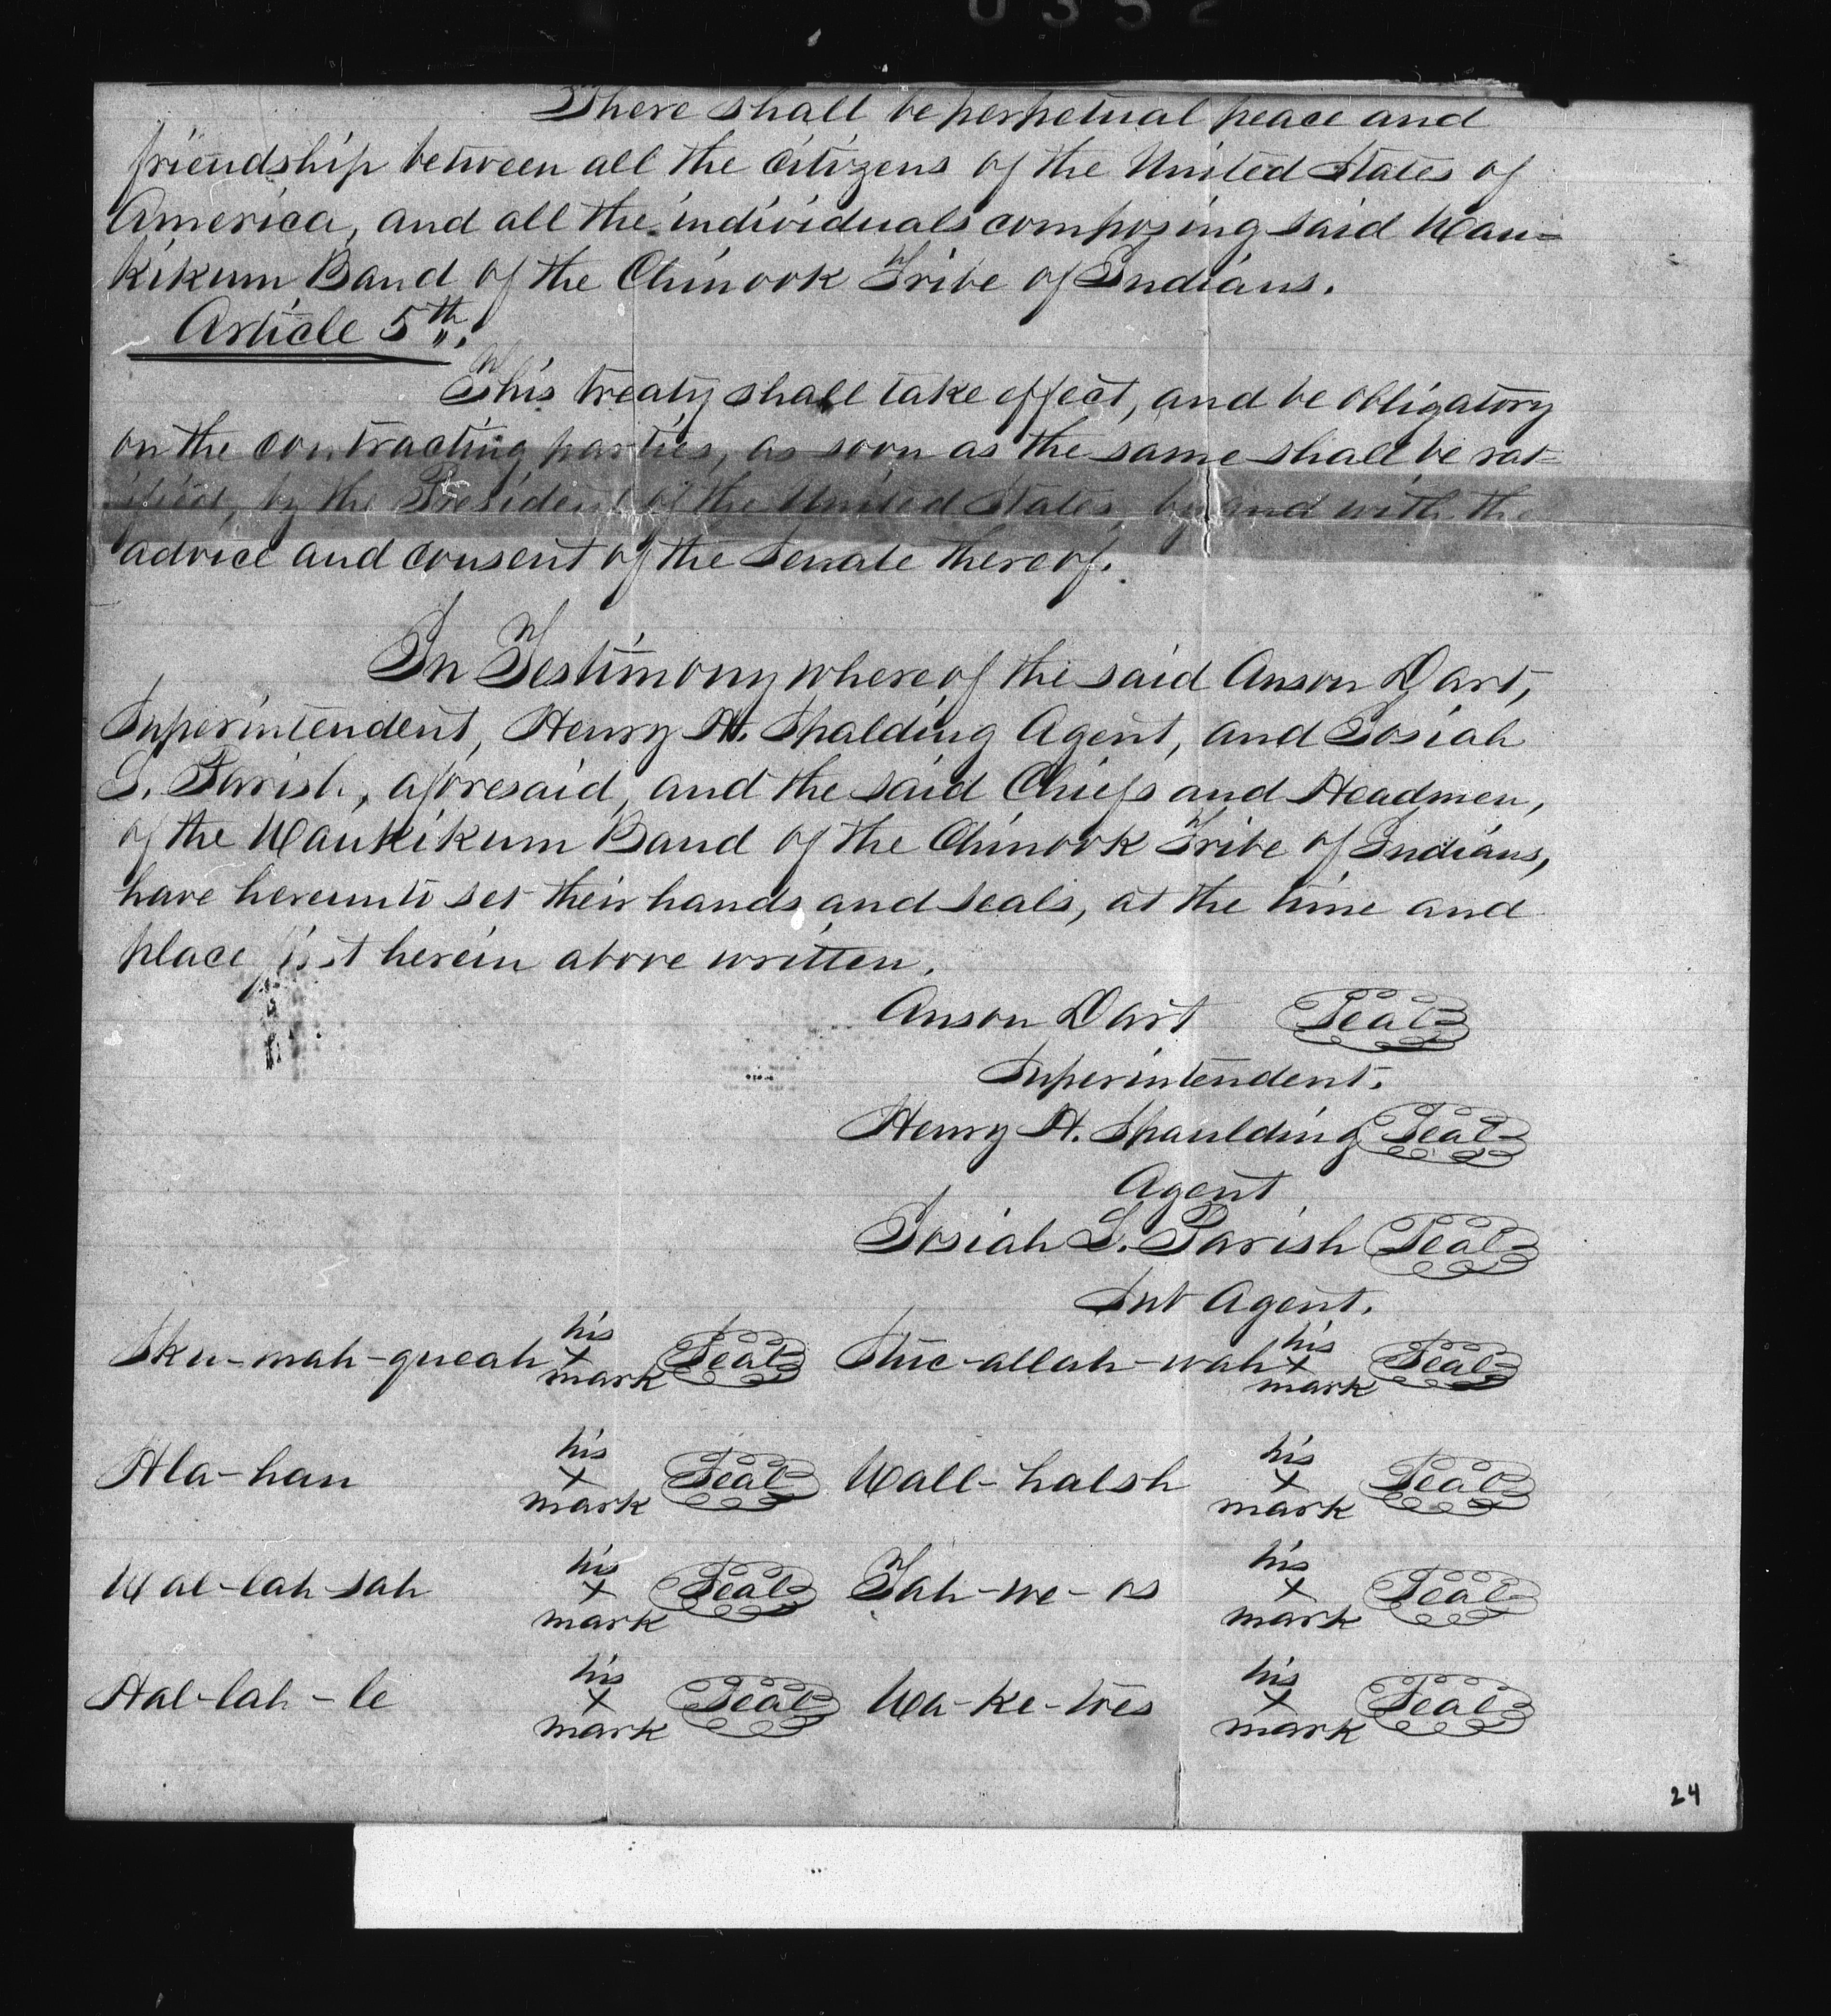 0352
There shall be perpetual peace and
friendship between all the Citizens of the United States of
America, and all the individuals composing said Wau=
kikum Band of the Chinook Tribe of Indians.
Article 5th.
This treaty shall take effect, and be obligatory
on the contracting parties, as soon as the same shall be rat=
ified, by the President of the United States, by and with the
advice and consent of the Senate thereof.
In Testimony whereof the said Anson Dart,
Superintendent, Henry H. Spalding Agent, and Josiah
L. Parish, aforesaid, and the said Chiefs and Headmen,
of the Waukikum Band of the Chinook Tribe of Indians,
have hereunto set their hands and seals, at the time and
place first herein above written.
Anson Dart Seal
Superintendent.
Henry H. Spaulding Seal
Agent
Josiah L. Parish Seal
Sub Agent.
his his
Sku-mah-queah x Seal Stuc-allah-wah x Seal
mark mark
his his
Hla-han x Seal Wall-halsh x Seal
mark mark
his his
Wal-lah-sah x Seal Tah-we-os x Seal
mark mark
his his
Hal-lah-le x Seal Wa-ke-tres x Seal
mark mark
24